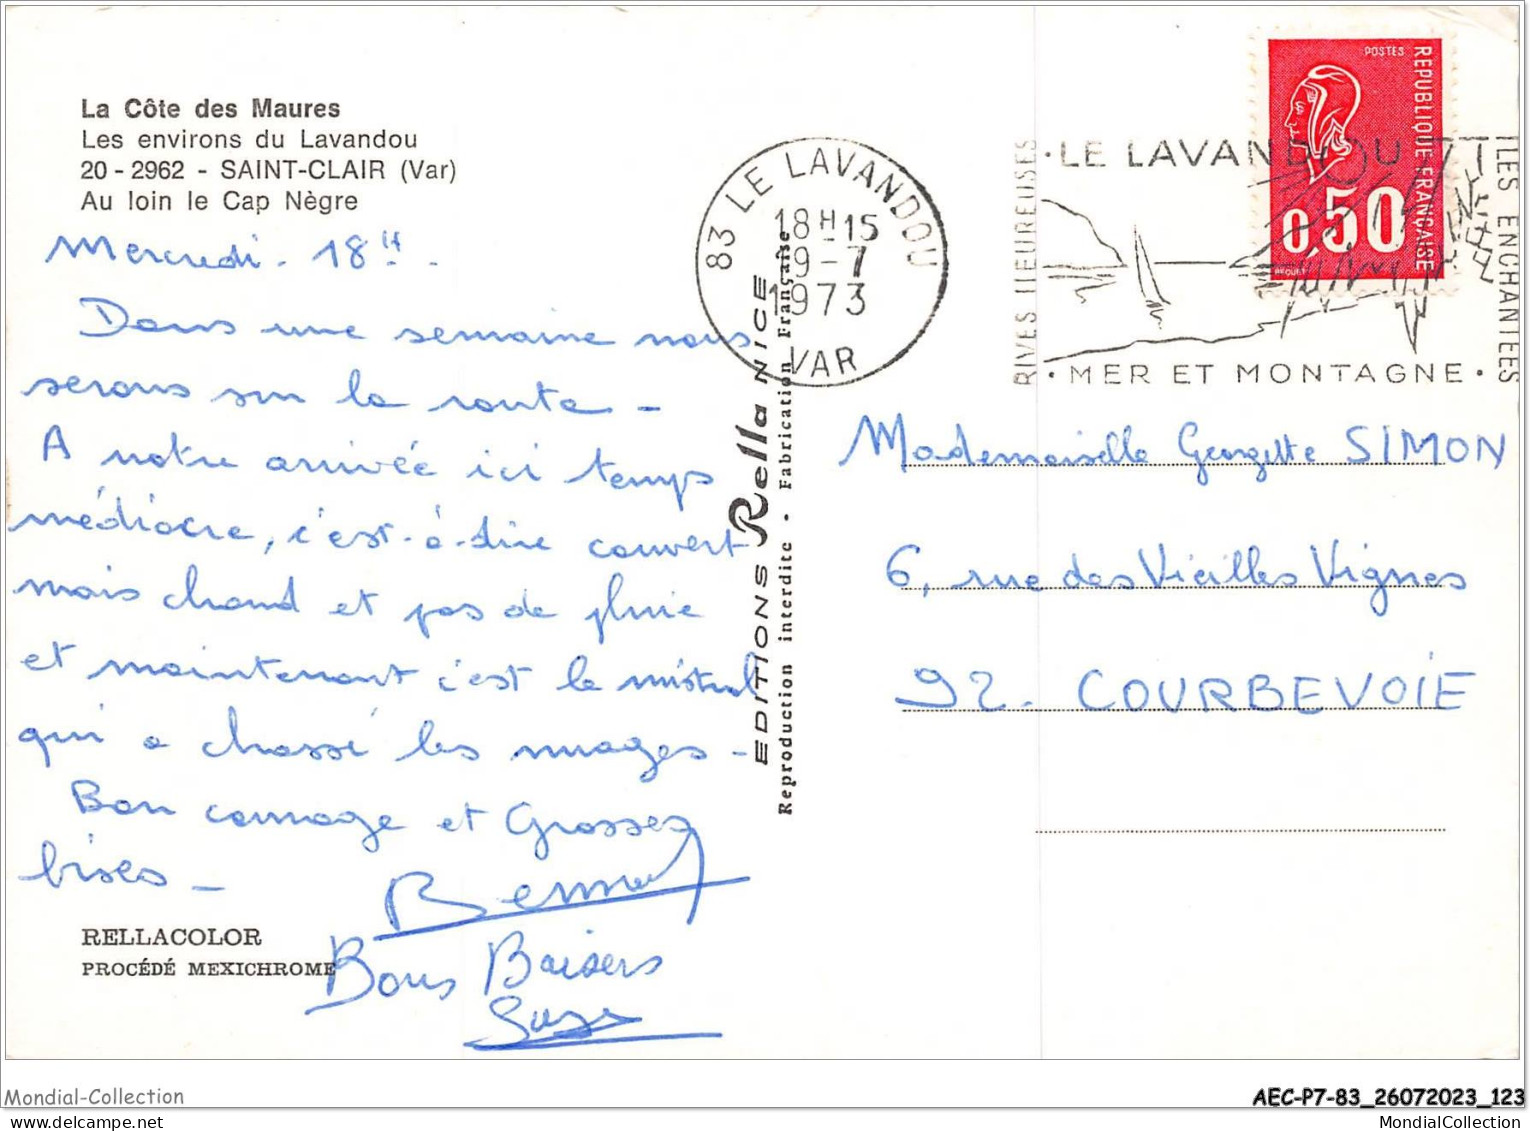 La Côte des Maures
Les environs du Lavandou
20 - 2962 - SAINT-CLAIR (Var)
Au loin le Cap Nègre
Mercredi - 18H -
Dans une semaine nous
serons sur la route -
A notre arrivée ici temps
médiocre, c'est-à-dire couvert
mais chaud et pas de pluie
et maintenant c'est le mistral
qui a chassé les nuages -
Bon courage et Grosses
bises -
Bernard
Bons Baisers
RELLACOLOR
PROCÉDÉ MEXICHROME
EDITIONS Rella NICE
Reproduction interdite • Fabrication Française
83 LE LAVANDOU
18H-15
9-7
1973
VAR
RIVES HEUREUSES
• LE LAVANDOU
ILES ENCHANTEES
• MER ET MONTAGNE •
POSTES
REPUBLIQUE FRANÇAISE
0,50
Mademoiselle Georgette SIMON
6, rue des Vieilles Vignes
92 - COURBEVOIE
Mondial-Collection
AEC-P7-83_26072023_123
Mondial-Collection.com
MondialCollection.com